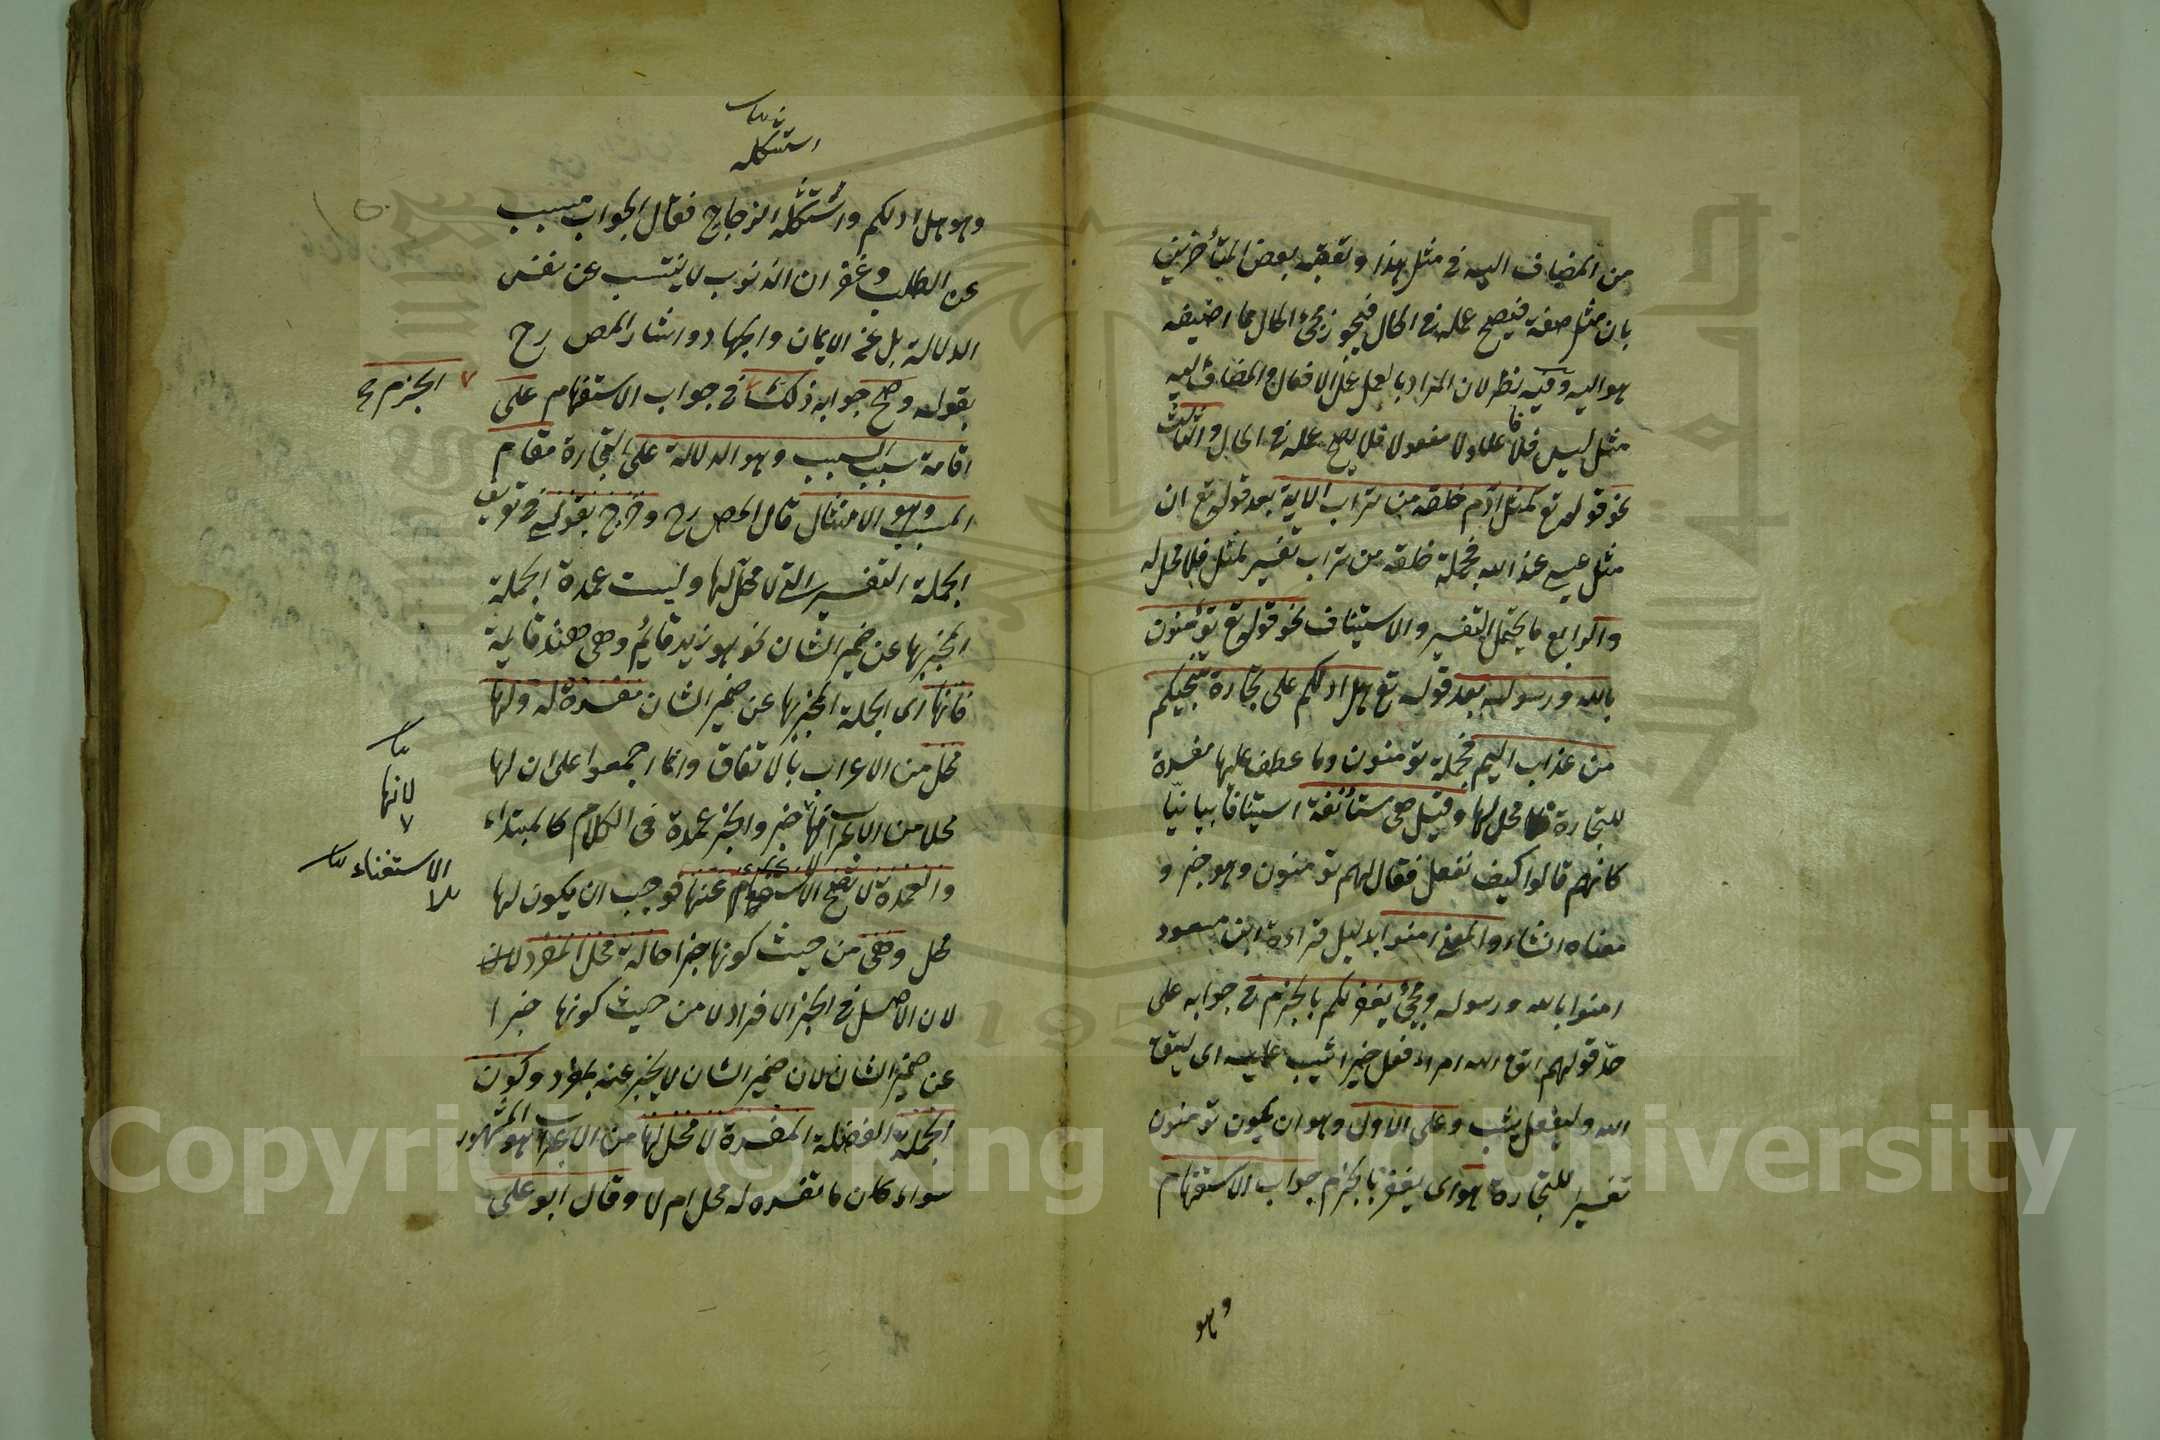 من المضاف اليه في مثل هذا وتعقبه بعض المتأخرين
بان مثل صفة فيصح عمله في الحال فيجوز مجيء الحال مما اضيفه
هو اليه وفيه نظر لان المراد بالعمل عمل الافعال والمضاف اليه
مثل ليس فاعلا ولا مفعولا فلا يصح عمله في الحال والثالث
نحو قوله تع كمثل ادم خلقه من تراب الاية بعد قوله تع ان
مثل عيسى عند الله فجملة خلقه من تراب تفسير لمثل فلا محل له
والرابع ما يحتمل التفسير والاستيناف نحو قوله تع تؤمنون
بالله ورسوله بعد قوله تع هل ادلكم على تجارة تنجيكم
من عذاب اليم فجملة تومنون وما عطف عليها مفسرة
للتجارة فلا محل لها وقيل هي مستأنفة استينافا بيانيا
كانهم قالوا كيف نفعل فقال لهم تومنون وهو خبر و
معناه انشاء والمعنى امنوا بدليل قراءة ابن مسعود
امنوا بالله ورسوله ومجئ يغفر لكم بالجزم في جوابه على
حد قولهم اتق الله امراء فعل خيرا يثب عليه اى ليتق
الله وليفعل يثب وعلى الاول وهو ان يكون تومنون
تفسيرا للتجارة هو اى يغفر بالجزم جواب الاستفهام
وهو
استشكله
وهو هل ادلكم واستشكله الزجاج فقال الجواب مسبب
عن الطلب وغفران الذنوب لا يتسبب عن نفس
الدلالة بل عن الايمان والجهاد واشار المص رح
بقوله وصح جوابه ذلك في جواب الاستفهام على
الجزم
اقامة سبب السبب وهو الدلالة على التجارة مقام
المسبب وهو الامتثال قال المص رح وخرج بقولى في تعريف
الجملة التفسيرية التي لا محل لها وليست عمدة الجملة
المخبر بها عن ضمير الشان نحو هو زيد قايم وهي هند قايمة
فانها اى الجملة المخبر بها عن ضمير الشان مفسرة له ولها
محل من الاعراب بالاتفاق وانما اجمعوا على ان لها
محلا من الاعراب لانها خبر والخبر عمدة في الكلام كالمبتداء
لانها
والعمدة لا يصح الاستغناء عنها فوجب ان يكون لها
الاستغناء
محل وهي من حيث كونها خبرا حالة محل المفرد
لان الاصل في الخبر الافراد لا من حيث كونها خبرا
عن ضمير الشان لان ضمير الشان لا يخبر عنه بمفرد وكون
الجملة الفضلة المفسرة لا محل لها من الاعراب هو المشهور
سواء كان ما تفسره له محل ام لا وقال ابو على
Copyright © King Saud University